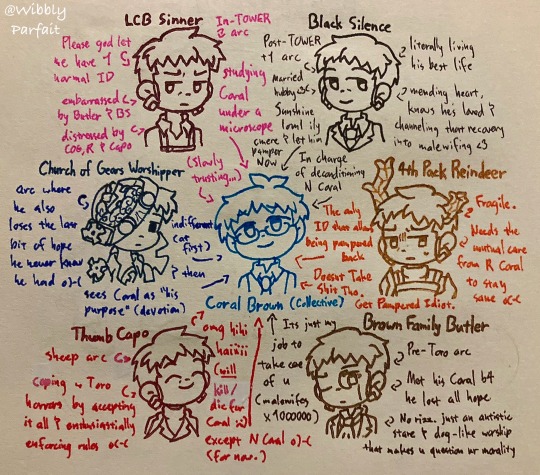 @Wibbly
Parfait
LCB Sinner
Please god let
me have 1
normal ID
embarrassed
by Butler & BS
distressed by
COG, R & Capo
In-TOWER
& arc
studying
Coral
under a
microscope
(Slowly
trusting...)
Black Silence
Post-TOWER
+1 arc
married
hubby <3
Sunshine
loml ily
cmere & let him
pamper
Now
literally living
his best life
mending heart,
knows he's loved &
channeling that recovery
into malewifing <3
In charge
of deconditioning
N Coral
Church of Gears Worshipper
arc where
he also
loses the last
bit of hope
he never knew
he had o)-(
indifferent
(at
first)
& then
sees Coral as "his
purpose" (devotion)
Coral Brown (Collective)
4th Pack Reindeer
Fragile.
Needs the
mutual care
from R Coral
to stay
sane o(-(
The only
ID that allows
being pampered
back
Doesn't Take
Shit Tho.
Get Pampered Idiot.
Thumb Capo
sheep arc
coping w Toro
horrors by accepting
it all & enthusiastically
enforcing rules o(-(
omg hihi
haiiii
(will
kill/
die for
Coral
except N Coral o)-(
(for now.)
Its just my
job to
take care
of u
(malomifes
x 1000000)
Brown Family Butler
Pre-Toro arc
Met his Coral b4
he lost all hope
No rizz. just an autistic
stare & dog-like worship
that makes u question ur morality